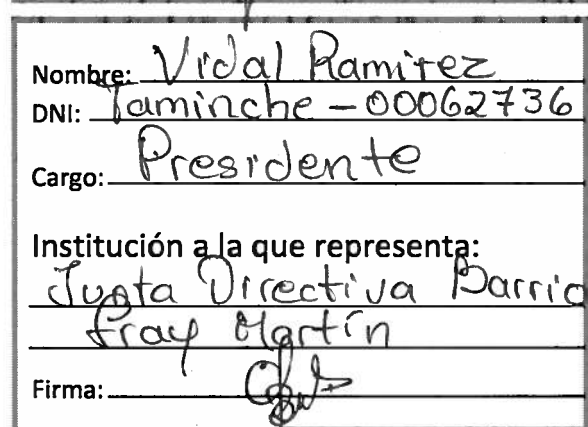 Nombre: Vidal Ramirez
DNI: Taminche - 00062736
Cargo: Presidente
Institución a la que representa:
Junta Directiva Barrio
Fray Martín
Firma: